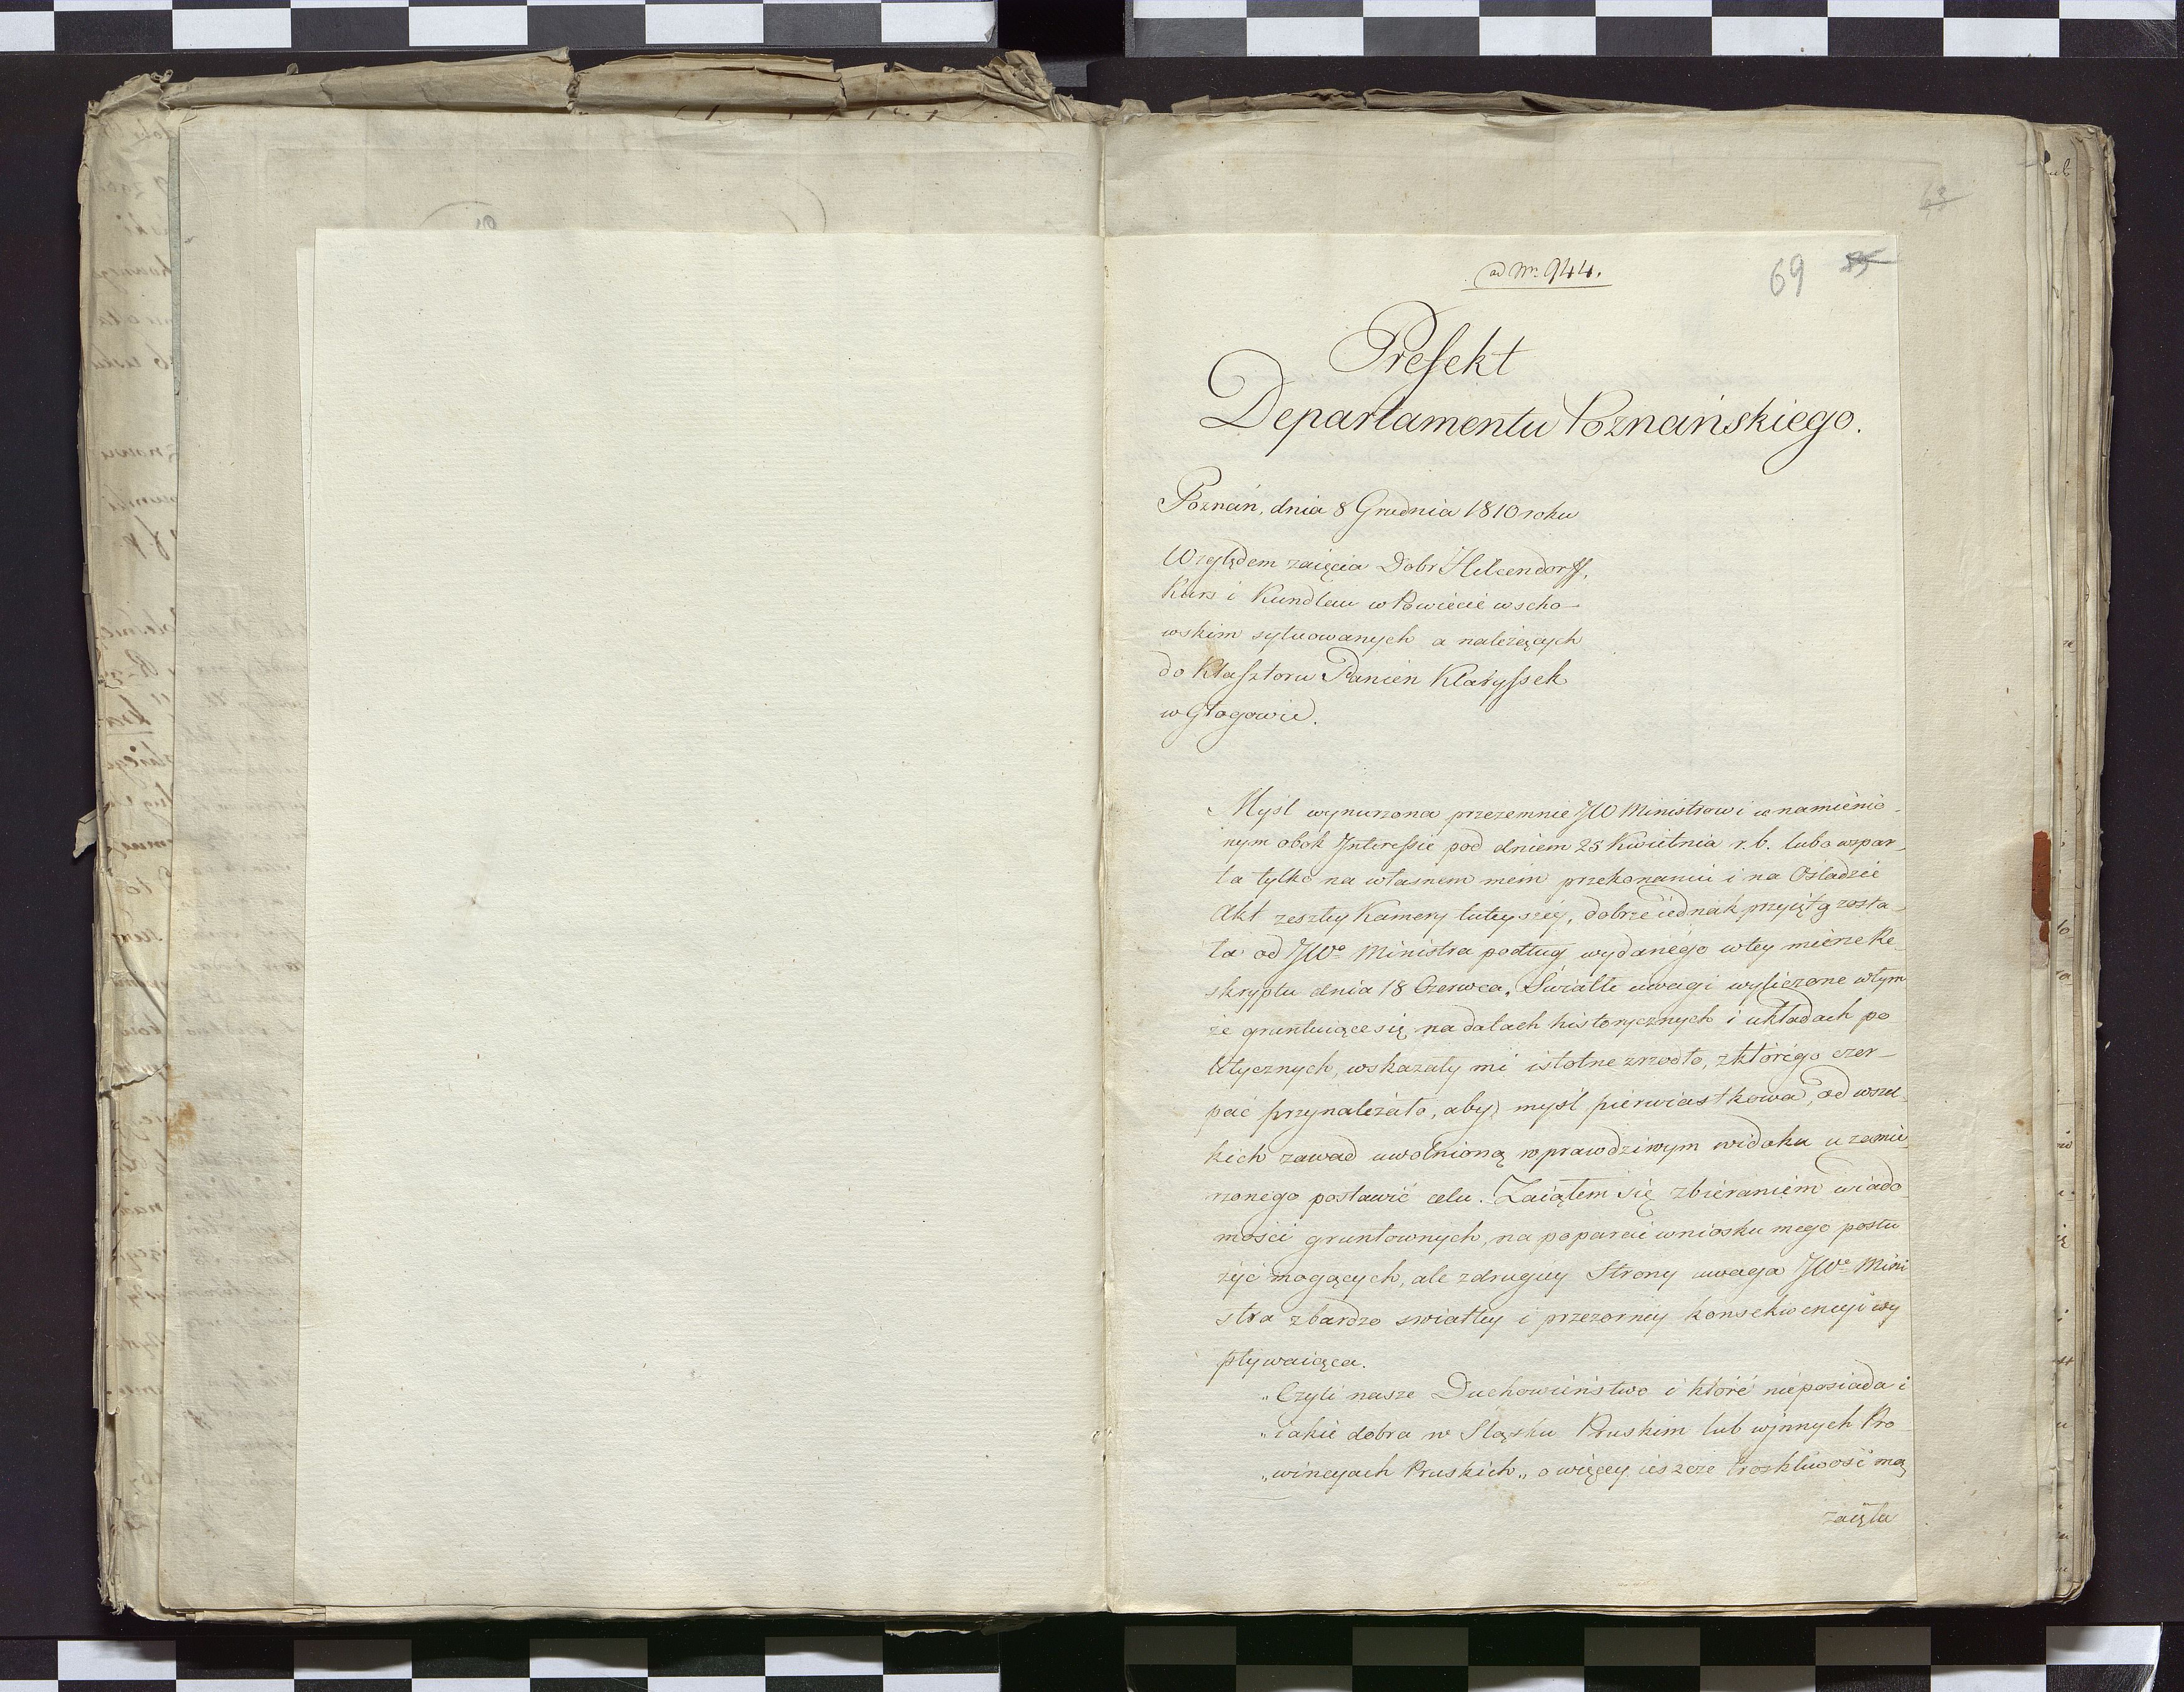 ad Nr. 944.
69
63
Prefekt
Departamentu Poznańskiego.
Poznań, dnia 8 Grudnia 1810 roku
Względem zaięcia Dobr Hilzendorff,
Kurs i Kundlau w Powiecie wscho-
wskim sytuowanych a należących
do Klasztoru Panien Klaryssek
w Głogowie.
Myśl wynurzona przezemnie JW Ministrowi w namienio-
nym obok Interessie pod dniem 25 Kwietnia r. b. lubo wspar-
ta tylko na własnem mem przekonaniu i na Osladzie
Akt zeszłey Kamery tuteyszey, dobrze iednak przyiętą zosta-
ła od JWo Ministra podług wydanego w tey mierze Re-
skryptu dnia 18 Czerwca. Światłe uwagi wyliczone w tym
że gruntuiące się na datach historycznych i układach po
litycznych, wskazały mi istotne zrzodło, z którego czer-
pać przynależało, aby myśl pierwiastkowa, od wszel-
kich zawad uwolnioną w prawdziwym widoku u zamie-
rzonego postawić celu. Zaiąłem się zbieraniem wiado-
mości gruntownych, na poparcie wniosku mego posłu
żyć mogących, ale z drugiey Strony uwaga JWo Mini
stra z bardzo swiatłey i przezorney konsekwencyi wy
pływaiąca.
„Czyli nasze Duchowieństwo i które nieposiada i
„iakie dobra w Sląsku Pruskim lub wjnnych Pro
„wincyach Pruskich„ o więcey ieszcze troskliwość mą
zaięła